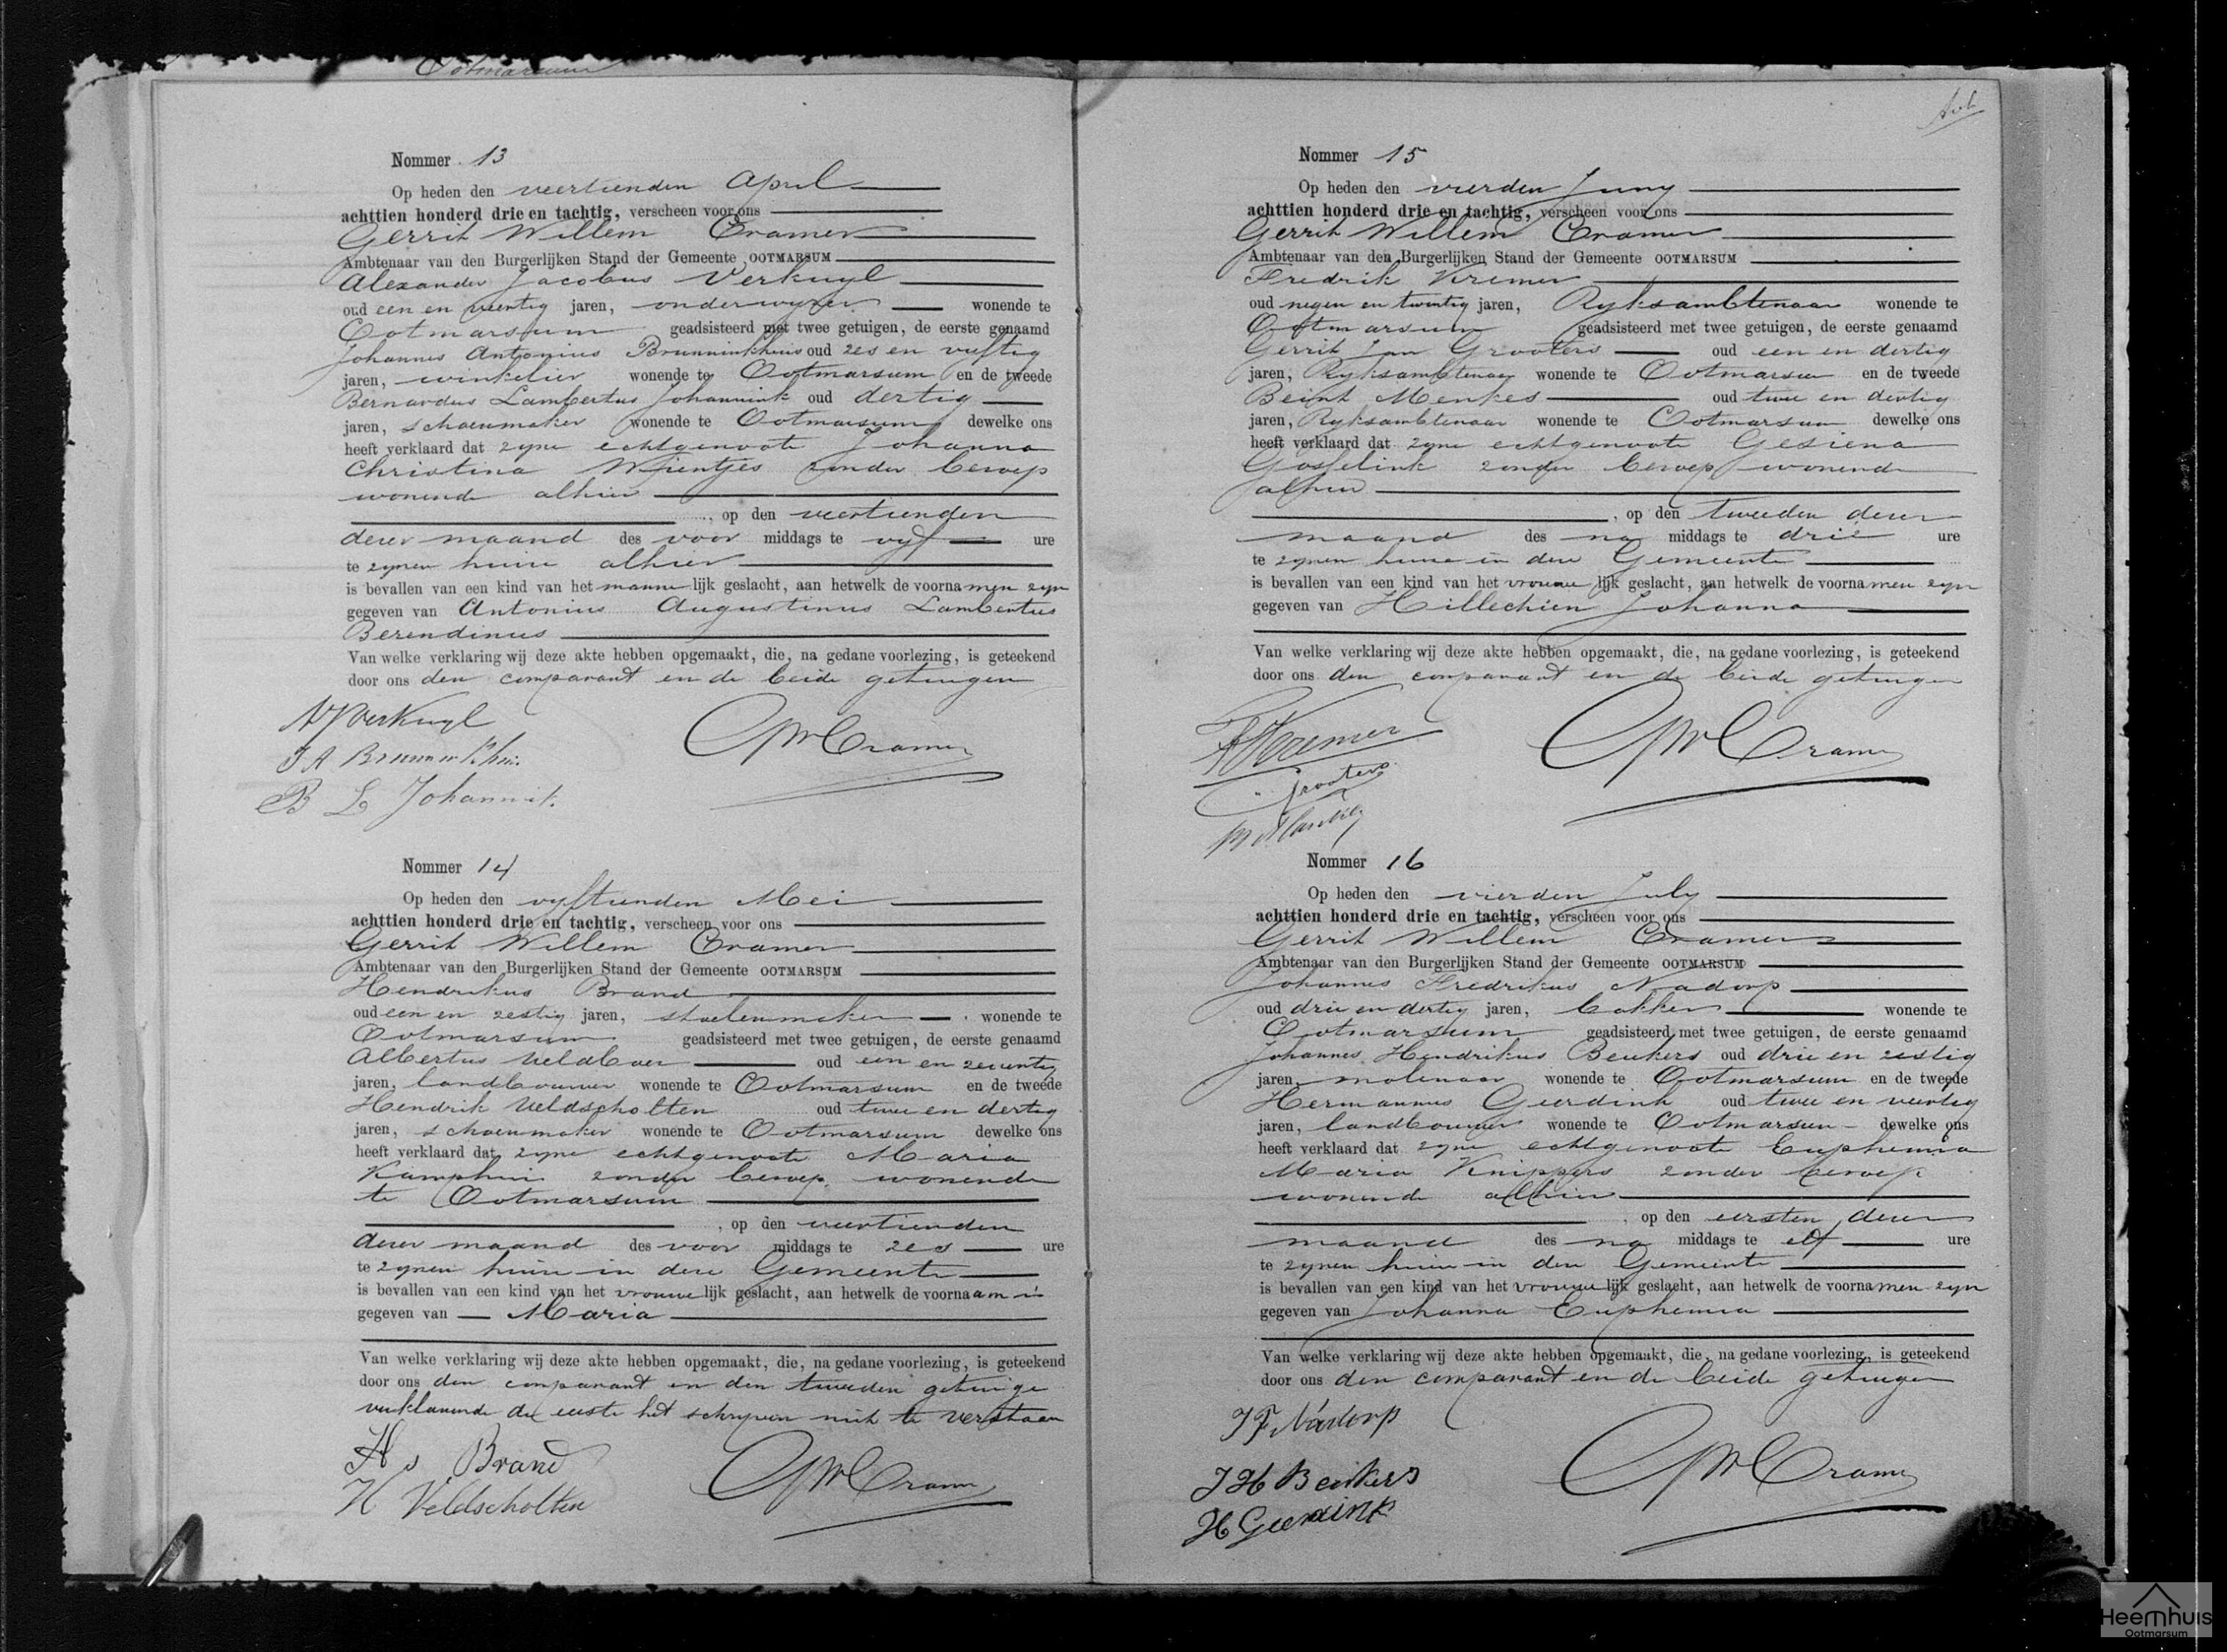 Ootmarsum
Nommer 13
Op heden den veertienden April
achttien honderd drie en tachtig, verscheen voor ons
Gerrit Willem Cramer
Ambtenaar van den Burgerlijken Stand der Gemeente OOTMARSUM
Alexander Jacobus Verkuyl
oud een en veertig jaren, onderwyzer wonende te
Ootmarsum geadsisteerd met twee getuigen, de eerste genaamd
Johannes Antonius Brunninkhuis oud zes en vyftig
jaren, winkelier wonende te Ootmarsum en de tweede
Bernardus Lambertus Johannink oud dertig
jaren, schoenmaker wonende te Ootmarsum dewelke ons
heeft verklaard dat zyne echtgenoote Johanna
Christina Wientjes zonder beroep
wonende alhier
, op den veertienden
dezer maand des voor middags te vyf ure
te zynen huize alhier
is bevallen van een kind van het manne lijk geslacht, aan hetwelk de voorna men zyn
gegeven van Antonius Augustinus Lambertus
Berendinus
Van welke verklaring wij deze akte hebben opgemaakt, die, na gedane voorlezing, is geteekend
door ons den comparant en de beide getuigen
AJVerkuyl
GWCramer
J A Brunninkhuis
B L Johannink
Nommer 14
Op heden den vyftienden Mei
achttien honderd drie en tachtig, verscheen voor ons
Gerrit Willem Cramer
Ambtenaar van den Burgerlijken Stand der Gemeente OOTMARSUM
Hendrikus Brand
oud een en zestig jaren, stoelenmaker wonende te
Ootmarsum geadsisteerd met twee getuigen, de eerste genaamd
Albertus Veldboer oud een en zeventig
jaren, landbouwer wonende te Ootmarsum en de tweede
Hendrik Veldscholten oud twee en dertig
jaren, schoenmaker wonende te Ootmarsum dewelke ons
heeft verklaard dat zyne echtgenoote Maria
Kamphuis zonder beroep wonende
te Ootmarsum
, op den veertienden
dezer maand des voor middags te zes ure
te zynen huize in deze Gemeente
is bevallen van een kind van het vrouwe lijk geslacht, aan hetwelk de voorna am is
gegeven van Maria
Van welke verklaring wij deze akte hebben opgemaakt, die, na gedane voorlezing, is geteekend
door ons den comparant en den tweeden getuige
verklarende de eerste het schryven niet te verstaan
Hs Brand
GWCramer
H Veldscholten
Nommer 15
Op heden den vierden Juny
achttien honderd drie en tachtig, verscheen voor ons
Gerrit Willem Cramer
Ambtenaar van den Burgerlijken Stand der Gemeente OOTMARSUM
Fredrik Kremer
oud negen en twintig jaren, Ryksambtenaar wonende te
Ootmarsum geadsisteerd met twee getuigen, de eerste genaamd
Gerrit Jan Grooters oud een en dertig
jaren, Ryksambtenaar wonende te Ootmarsum en de tweede
Beint Menkes oud twee en dertig
jaren, Ryksambtenaar wonende te Ootmarsum dewelke ons
heeft verklaard dat zyne echtgenoote Gesiena
Gosselink zonder beroep wonende
alhier
, op den tweeden dezer
maand des na middags te drie ure
te zynen huize in deze Gemeente
is bevallen van een kind van het vrouwe lijk geslacht, aan hetwelk de voorna men zyn
gegeven van Hillechien Johanna
Van welke verklaring wij deze akte hebben opgemaakt, die, na gedane voorlezing, is geteekend
door ons den comparant en de beide getuigen
F Kremer
GWCramer
Grooters
Nommer 16
Op heden den vierden July
achttien honderd drie en tachtig, verscheen voor ons
Gerrit Willem Cramer
Ambtenaar van den Burgerlijken Stand der Gemeente OOTMARSUM
Johannes Fredrikus Nadorp
oud drie en dertig jaren, bakker wonende te
Ootmarsum geadsisteerd met twee getuigen, de eerste genaamd
Johannes Hendrikus Beukers oud drie en zestig
jaren, molenaar wonende te Ootmarsum en de tweede
Hermannus Geerdink oud twee en veertig
jaren, landbouwer wonende te Ootmarsum dewelke ons
heeft verklaard dat zyne echtgenoote Euphemia
Maria Knippers zonder beroep
wonende alhier
, op den eersten dezer
maand des na middags te elf ure
te zynen huize in deze Gemeente
is bevallen van een kind van het vrouwe lijk geslacht, aan hetwelk de voorna men zyn
gegeven van Johanna Euphemia
Van welke verklaring wij deze akte hebben opgemaakt, die, na gedane voorlezing, is geteekend
door ons den comparant en de beide getuigen
J F Nadorp
GWCramer
J H Beukers
H Geerdink
Heemhuis
Ootmarsum